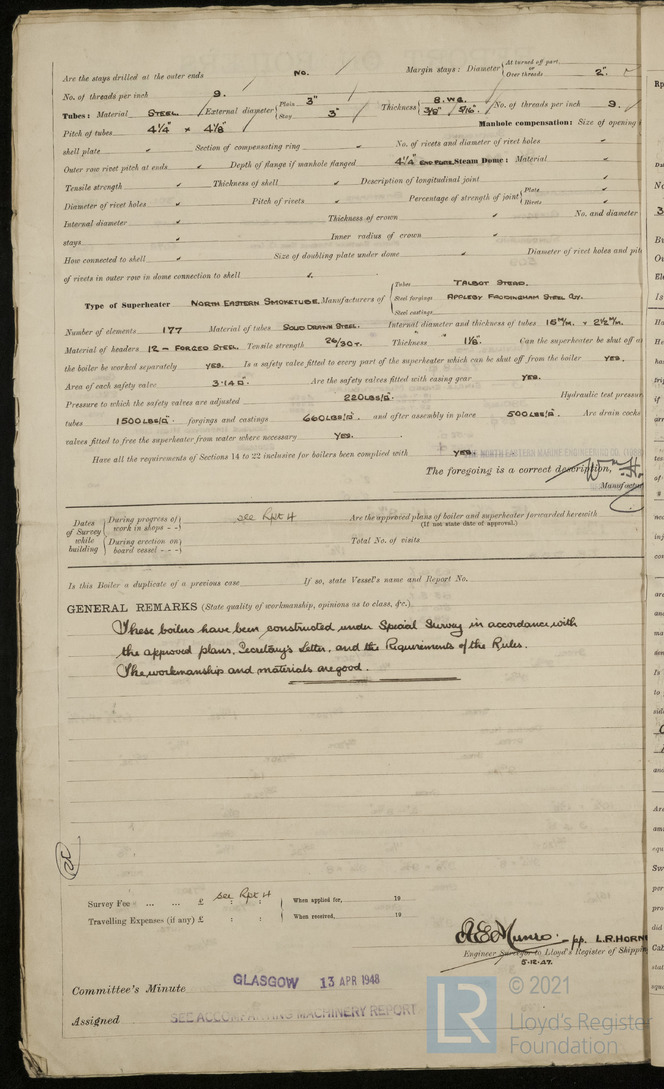 Are the stays drilled at the outer ends No. Margin stays: Diameter { At turned off part or Over threads 2"
No. of threads per inch 9.
Tubes: Material STEEL. External diameter { Plain 3" Stay 3" Thickness { 8.WG. 3/8" 5/16" No. of threads per inch 9.
Pitch of tubes 4¼" × 4⅛" Manhole compensation: Size of opening
shell plate Section of compensating ring No. of rivets and diameter of rivet holes
Outer row rivet pitch at ends Depth of flange if manhole flanged 4¼" Steam Dome: Material
Tensile strength Thickness of shell Description of longitudinal joint
Diameter of rivet holes Pitch of rivets Percentage of strength of joint { Plate Rivets
Internal diameter Thickness of crown No. and diameter
stays Inner radius of crown
How connected to shell Size of doubling plate under dome Diameter of rivet holes and pit
of rivets in outer row in dome connection to shell
Type of Superheater NORTH EASTERN SMOKETUBE. Manufacturers of { Tubes TALBOT STEAD.
Steel forgings APPLEBY FRODINGHAM STEEL COY.
Steel castings
Number of elements 177 Material of tubes SOLID DRAWN STEEL. Internal diameter and thickness of tubes 16 M/M. × 2½ M/M.
Material of headers 12 - FORGED STEEL. Tensile strength 26/30 T. Thickness 1⅛". Can the superheater be shut off a
the boiler be worked separately YES. Is a safety valve fitted to every part of the superheater which can be shut off from the boiler YES.
Area of each safety valve 3.14 □". Are the safety valves fitted with easing gear YES.
Pressure to which the safety valves are adjusted 220 LBS/□". Hydraulic test pressure
tubes 1500 LBS/□". forgings and castings 660 LBS/□". and after assembly in place 500 LBS/□". Are drain cocks
valves fitted to free the superheater from water where necessary YES.
Have all the requirements of Sections 14 to 22 inclusive for boilers been complied with YES.
NORTH EASTERN MARINE ENGINEERING CO.
The foregoing is a correct description,
Manufactur
Dates of Survey while building { During progress of work in shops - - } see Rpt 4 Are the approved plans of boiler and superheater forwarded herewith
(If not state date of approval.)
{ During erection on board vessel - - - } Total No. of visits
Is this Boiler a duplicate of a previous case If so, state Vessel's name and Report No.
GENERAL REMARKS (State quality of workmanship, opinions as to class, &c.)
These boilers have been constructed under Special Survey in accordance with
the approved plans, Secretary's Letter, and the Requirements of the Rules.
The workmanship and materials are good.
Survey Fee ... ... £ see Rpt 4 : : When applied for, 19
Travelling Expenses (if any) £ : : When received, 19
A E Munro. pp. L.R. HORN
Engineer Surveyor to Lloyd's Register of Shipping
5.12.47.
Committee's Minute GLASGOW 13 APR 1948
Assigned SEE ACCOMPANYING MACHINERY REPORT
© 2021
LR Lloyd's Register
Foundation